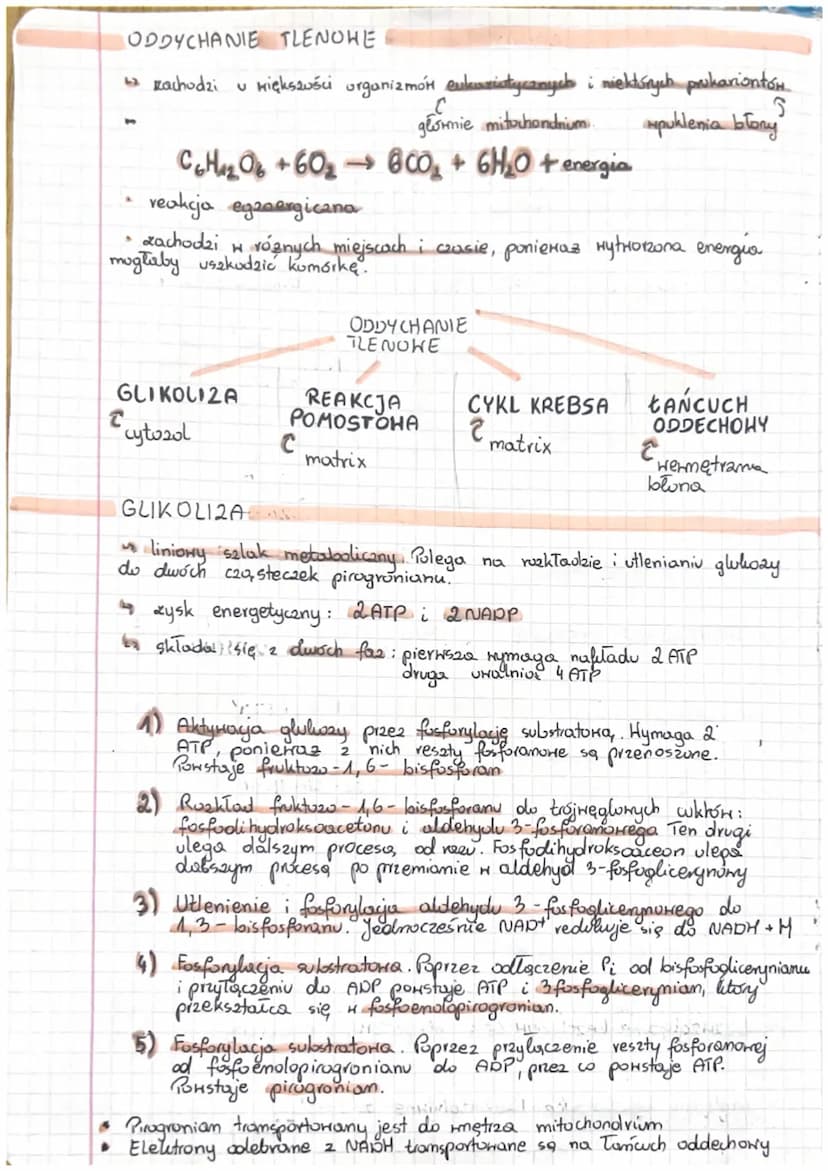 ODDYCHANIE TLENOWE
↳ zachodzi u większości organizmów eukariotycznych i niektórych prokariontów
głównie mitochondrium wpuklenia błony
C₆H₁₂O₆ + 6O₂ → 6CO₂ + 6H₂O + energia
• reakcja egzoergiczna
• zachodzi w różnych miejscach i czasie, ponieważ wytworzona energia
mogłaby uszkodzić komórkę.
ODDYCHANIE
TLENOWE
GLIKOLIZA
cytozol
REAKCJA
POMOSTOWA
matrix
CYKL KREBSA
matrix
ŁAŃCUCH
ODDECHOWY
wewnętrzna
błona
GLIKOLIZA
↳ liniowy szlak metaboliczny. Polega na rozkładzie i utlenianiu glukozy
do dwóch cząsteczek pirogronianu.
↳ zysk energetyczny: 2 ATP i 2 NADP
↳ składa się z dwóch faz: pierwsza wymaga nakładu 2 ATP
druga uwalnia 4 ATP
1) Aktywacja glukozy przez fosforylację substratową. Wymaga 2
ATP, ponieważ z nich reszty fosforanowe są przenoszone.
Powstaje fruktozo-1,6-bisfosforan
2) Rozkład fruktozo-1,6-bisfosforanu do trójwęglowych cukrów:
fosfodihydroksoacetonu i aldehydu 3-fosforanowego Ten drugi
ulega dalszym procesą od razu. Fosfodihydroksoaceon ulega
dalszym procesą po przemianie w aldehyd 3-fosfoglicerynowy
3) Utlenienie i fosforylacja aldehydu 3-fosfoglicerynowego do
1,3-bisfosforanu. Jednocześnie NAD⁺ redukuje się do NADH + H
4) Fosforylacja substratowa. Poprzez odłączenie Pi od bisfosfoglicerynianu
i przyłączeniu do ADP powstaje ATP i 3fosfoglicerynian, który
przekształca się w fosfoenolopirogronian.
5) Fosforylacja substratowa. Poprzez przyłączenie reszty fosforanowej
od fosfoenolopirogronianu do ADP, przez co powstaje ATP.
Powstaje pirogronian.
• Pirogronian transportowany jest do wnętrza mitochondrium
• Elektrony odebrane z NADH transportowane są na łańcuch oddechowy